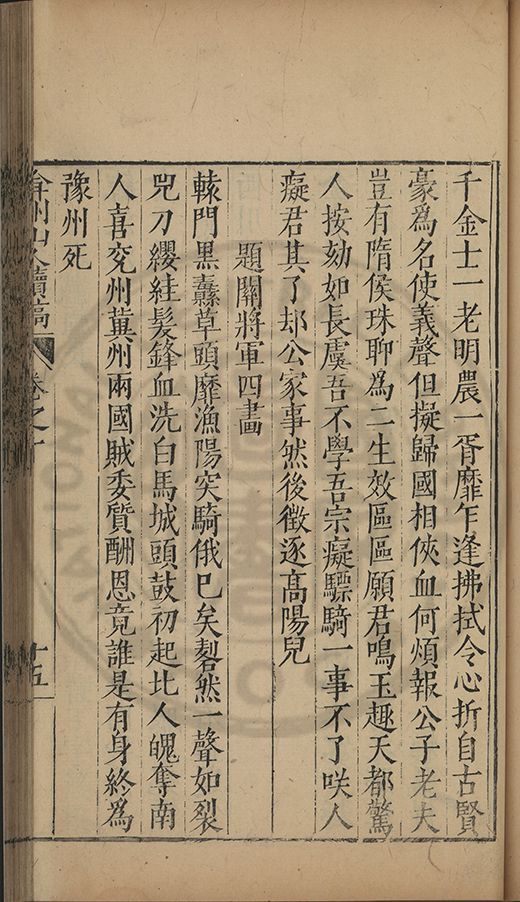 千金士一老明農一胥靡乍逢拂拭令心折自古賢
豪爲名使義聲但擬歸國相俠血何煩報公子老夫
豈有隋侯珠聊爲二生效區區願君鳴玉趣天都驚
人按劾如長虞吾不學吾宗癡驃騎一事不了咲人
癡君其了却公家事然後徵逐高陽兒
題關將軍四畫
轅門黑纛草頭靡漁陽突騎俄巳矣然一聲如裂
兕刀纓絓髮鋒血洗白馬城頭鼓初起比人魄奪南
人喜兖州冀州兩國賊委質酬恩竟誰是有身終爲
豫州死
弇州山人續稿 卷之十 十五